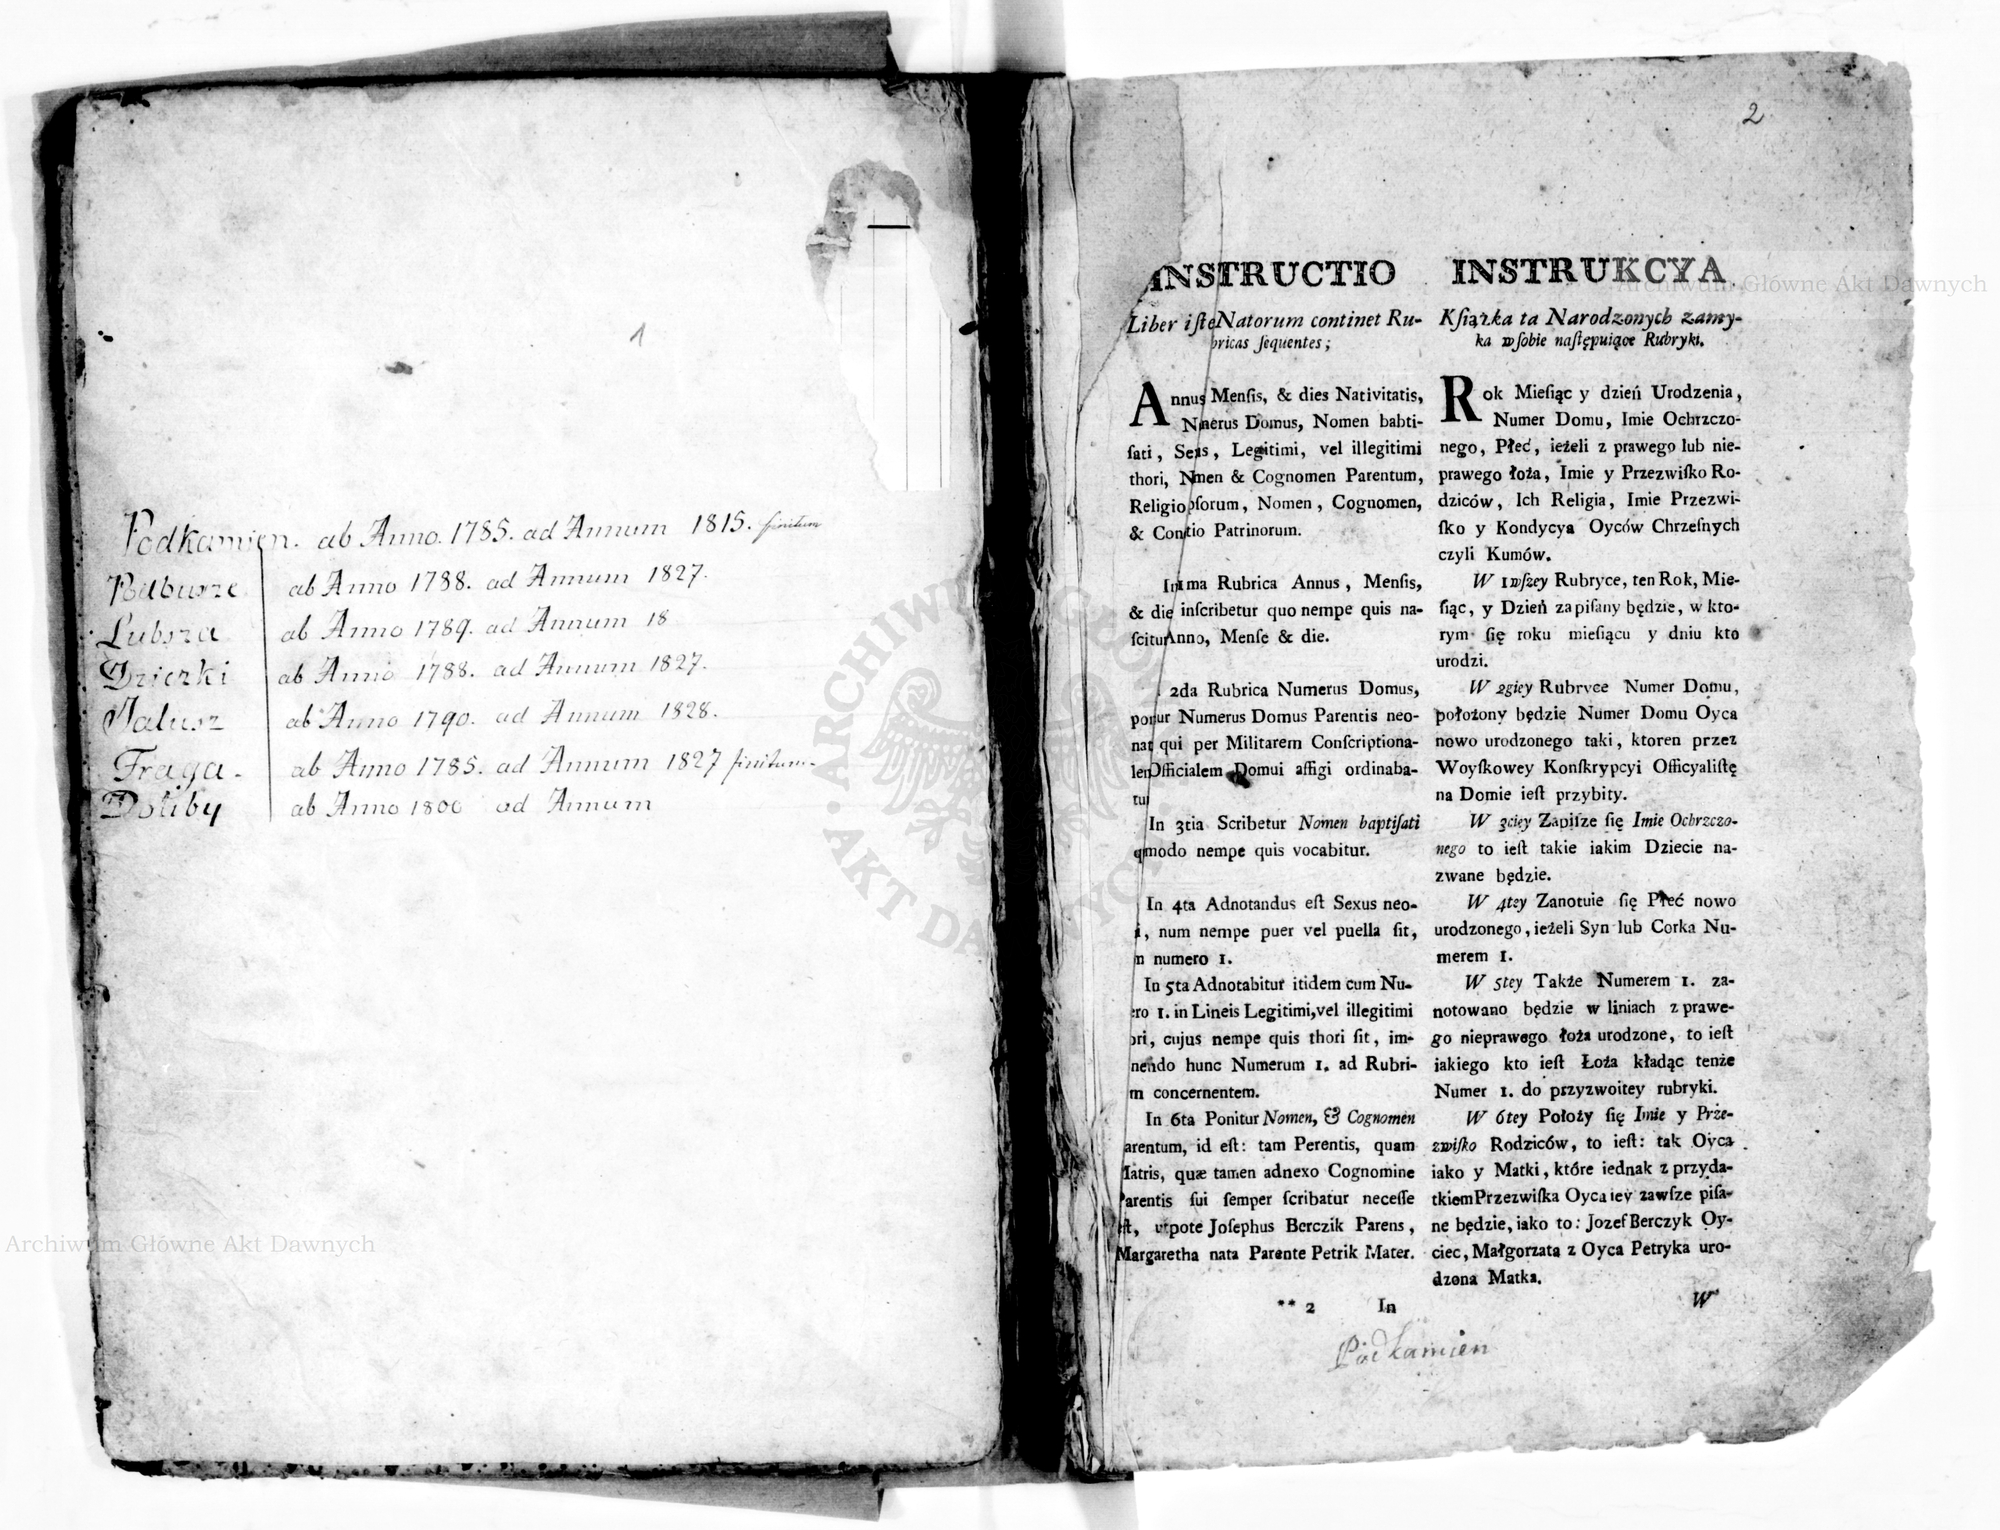 1
Podkamien. ab Anno. 1785. ad Annum 1815. finitum
Podburze ab Anno 1788. ad Annum 1827.
Lubsza ab Anno 1789. ad Annum 18
Dziczki ab Anno 1788. ad Annum 1827.
Jalusz ab Anno 1790. ad Annum 1828.
Fraga. ab Anno 1785. ad Annum 1827 finitum.
Doliby ab Anno 1800 ad Annum
Archiwum Główne Akt Dawnych
ARCHIWUM GŁÓWNE AKT DAWNYCH
2
INSTRUCTIO
Liber iſte Natorum continet Ru-
bricas ſequentes;
Annus Menſis, & dies Nativitatis,
Nmerus Domus, Nomen babti-
ſati, Sexs, Legitimi, vel illegitimi
thori, Nmen & Cognomen Parentum,
Religio oſorum, Nomen, Cognomen,
& Contio Patrinorum.
In ima Rubrica Annus, Menſis,
& die inſcribetur quo nempe quis na-
ſcitur Anno, Menſe & die.
2da Rubrica Numerus Domus,
ponur Numerus Domus Parentis neo-
nat qui per Militarem Conſcriptiona-
lem Officialem Domui affigi ordinaba-
tur
In 3tia Scribetur Nomen baptiſati
qmodo nempe quis vocabitur.
In 4ta Adnotandus eſt Sexus neo-
i, num nempe puer vel puella ſit,
m numero 1.
In 5ta Adnotabitur itidem cum Nu-
ero 1. in Lineis Legitimi, vel illegitimi
ori, cujus nempe quis thori ſit, im-
nendo hunc Numerum 1. ad Rubri-
m concernentem.
In 6ta Ponitur Nomen, & Cognomen
arentum, id eſt: tam Perentis, quam
Matris, quæ tamen adnexo Cognomine
Parentis ſui ſemper ſcribatur neceſſe
eſt, utpote Joſephus Berczik Parens,
Margaretha nata Parente Petrik Mater.
** 2 In
INSTRUKCYA
Kſiążka ta Narodzonych zamy-
ka w ſobie naſtępuiące Rubryki.
Rok Mieſiąc y dzień Urodzenia,
Numer Domu, Imie Ochrzczo-
nego, Płeć, ieżeli z prawego lub nie-
prawego łoża, Imie y Przezwiſko Ro-
dziców, Ich Religia, Imie Przezwi-
ſko y Kondycya Oyców Chrzeſnych
czyli Kumów.
W 1wſzey Rubryce, ten Rok, Mie-
ſiąc, y Dzień zapiſany będzie, w kto-
rym ſię roku mieſiącu y dniu kto
urodzi.
W 2giey Rubryce Numer Domu,
położony będzie Numer Domu Oyca
nowo urodzonego taki, ktoren przez
Woyſkowey Konſkrypcyi Officyaliſtę
na Domie ieſt przybity.
W 3ciey Zapiſze ſię Imie Ochrzczo-
nego to ieſt takie iakim Dziecie na-
zwane będzie.
W 4tey Zanotuie ſię Płeć nowo
urodzonego, ieżeli Syn lub Corka Nu-
merem 1.
W 5tey Także Numerem 1. za-
notowano będzie w liniach z prawe-
go nieprawego łoża urodzone, to ieſt
iakiego kto ieſt Łoża kładąc tenże
Numer 1. do przyzwoitey rubryki.
W 6tey Położy ſię Imie y Prze-
zwiſko Rodziców, to ieſt: tak Oyca
iako y Matki, które iednak z przyda-
tkiem Przezwiſka Oyca iey zawſze piſa-
ne będzie, iako to: Jozef Berczyk Oy-
ciec, Małgorzata z Oyca Petryka uro-
dzona Matka.
W
Podkamień
Archiwum Główne Akt Dawnych